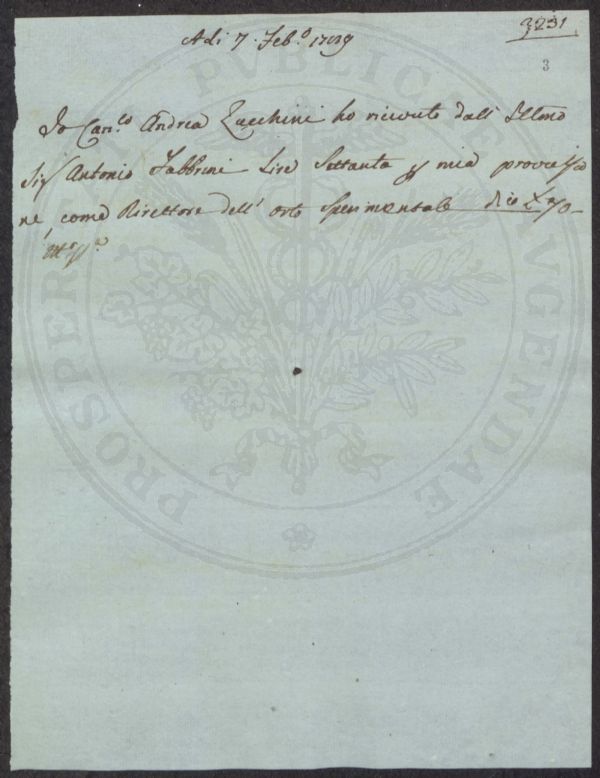 3231
Adi 7. Feb.º 1789
3
Io Can.co Andrea Zucchini ho ricevuto dall' Illmo
Sig Antonio Fabbrini Lire Settanta mia provvisio
ne, come Direttore dell' orto Sperimentale dico L 70
PROSPERITATI PUBLICAE AUGENDAE